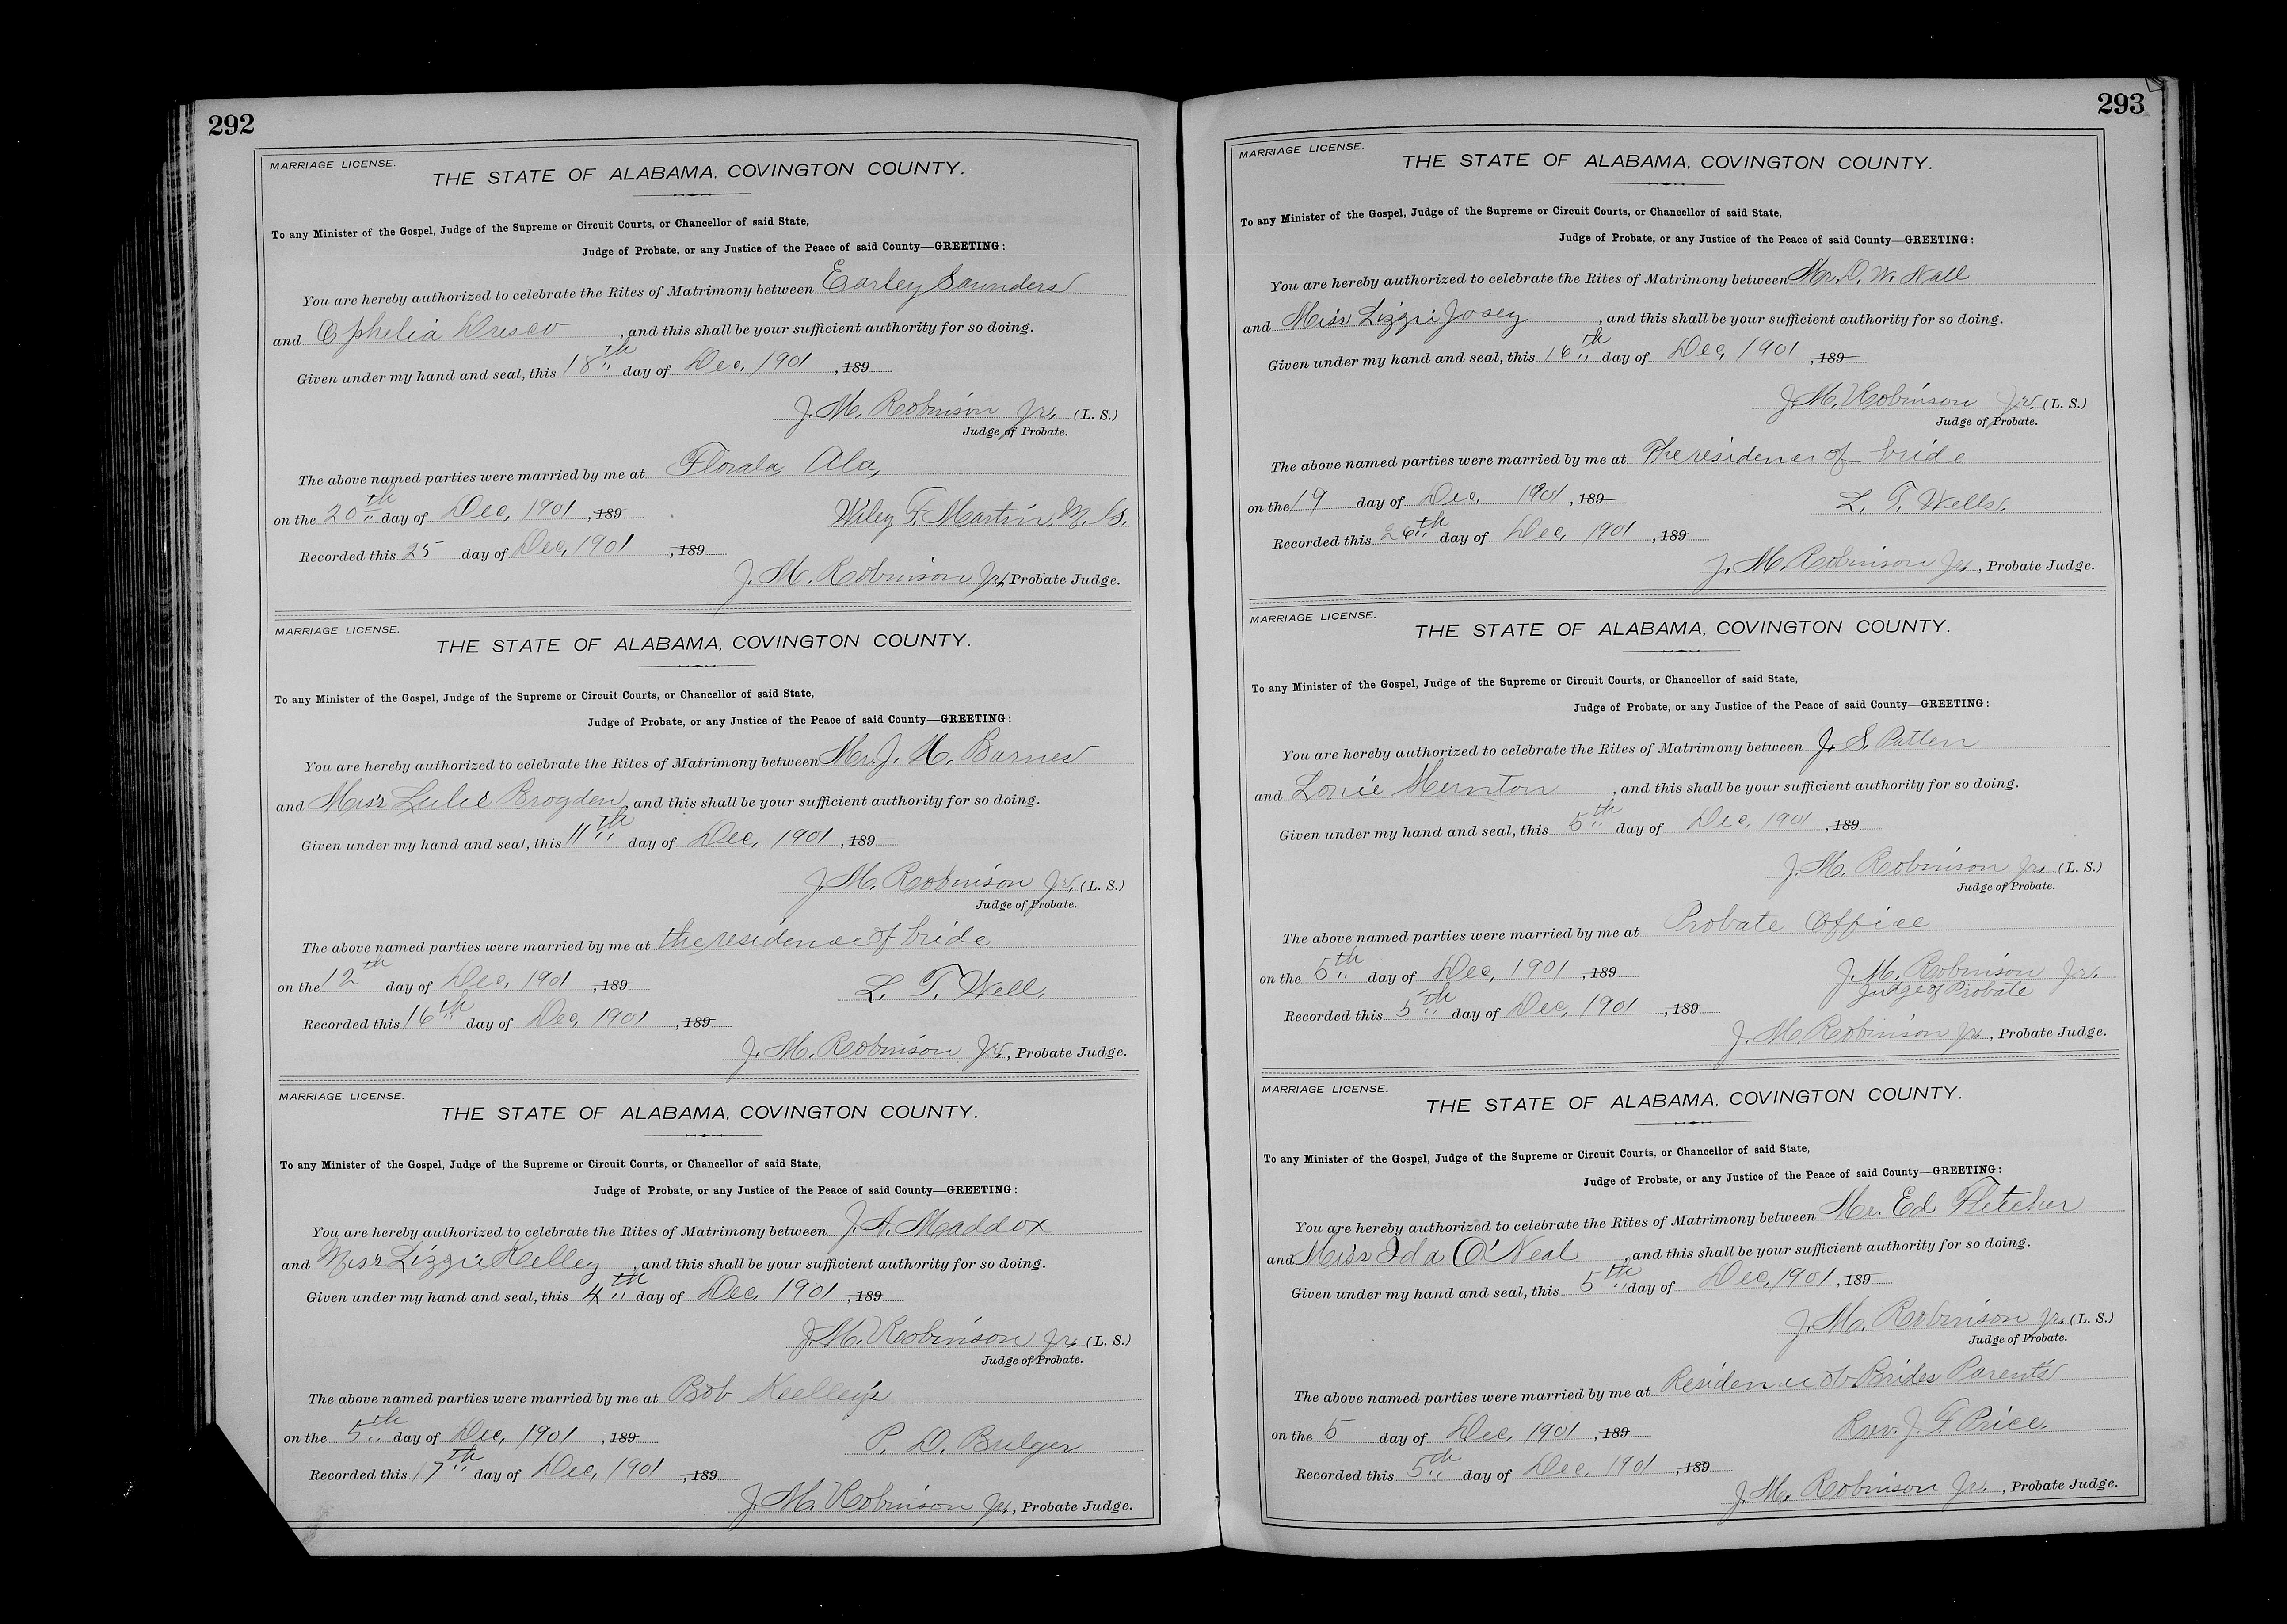 292
MARRIAGE LICENSE.
THE STATE OF ALABAMA, COVINGTON COUNTY.
To any Minister of the Gospel, Judge of the Supreme or Circuit Courts, or Chancellor of said State,
Judge of Probate, or any Justice of the Peace of said County—GREETING:
You are hereby authorized to celebrate the Rites of Matrimony between Earley Saunders
and Ophelia , and this shall be your sufficient authority for so doing.
Given under my hand and seal, this 18th day of Dec, 1901 , 189
J. M. Robinson Jr. (L. S.)
Judge of Probate.
The above named parties were married by me at Florala, Ala,
on the 20th day of Dec, 1901 , 189 Wiley F. Martin, M. G.
Recorded this 25 day of Dec, 1901 , 189
J. M. Robinson Jr, Probate Judge.
MARRIAGE LICENSE.
THE STATE OF ALABAMA, COVINGTON COUNTY.
To any Minister of the Gospel, Judge of the Supreme or Circuit Courts, or Chancellor of said State,
Judge of Probate, or any Justice of the Peace of said County—GREETING:
You are hereby authorized to celebrate the Rites of Matrimony between Mr. J. H. Barnes
and Miss Lulie Brogden, and this shall be your sufficient authority for so doing.
Given under my hand and seal, this 11th day of Dec, 1901 , 189
J. M. Robinson Jr. (L. S.)
Judge of Probate.
The above named parties were married by me at the residence of bride
on the 12th day of Dec, 1901 , 189 L. T. Well,
Recorded this 16th day of Dec, 1901 , 189
J. M. Robinson Jr., Probate Judge.
MARRIAGE LICENSE.
THE STATE OF ALABAMA, COVINGTON COUNTY.
To any Minister of the Gospel, Judge of the Supreme or Circuit Courts, or Chancellor of said State,
Judge of Probate, or any Justice of the Peace of said County—GREETING:
You are hereby authorized to celebrate the Rites of Matrimony between J. A. Maddox
and Miss Lizzie Kelley , and this shall be your sufficient authority for so doing.
Given under my hand and seal, this 4th day of Dec, 1901 , 189
J. M. Robinson Jr. (L. S.)
Judge of Probate.
The above named parties were married by me at Bob Keelley's
on the 5th day of Dec, 1901 , 189 P. D. Bulger
Recorded this 17th day of Dec, 1901 , 189
J. M. Robinson Jr., Probate Judge.
293
MARRIAGE LICENSE.
THE STATE OF ALABAMA, COVINGTON COUNTY.
To any Minister of the Gospel, Judge of the Supreme or Circuit Courts, or Chancellor of said State,
Judge of Probate, or any Justice of the Peace of said County—GREETING:
You are hereby authorized to celebrate the Rites of Matrimony between Mr. D. W. Nall
and Miss Lizzie Josey , and this shall be your sufficient authority for so doing.
Given under my hand and seal, this 16th day of Dec, 1901 , 189
J. M. Robinson Jr. (L. S.)
Judge of Probate.
The above named parties were married by me at The residence of bride
on the 19 day of Dec, 1901 , 189 L. T. Wells,
Recorded this 26th day of Dec, 1901 , 189
J. M. Robinson Jr., Probate Judge.
MARRIAGE LICENSE.
THE STATE OF ALABAMA, COVINGTON COUNTY.
To any Minister of the Gospel, Judge of the Supreme or Circuit Courts, or Chancellor of said State,
Judge of Probate, or any Justice of the Peace of said County—GREETING:
You are hereby authorized to celebrate the Rites of Matrimony between J. S. Patten
and Lonie , and this shall be your sufficient authority for so doing.
Given under my hand and seal, this 5th day of Dec, 1901 , 189
J. M. Robinson Jr. (L. S.)
Judge of Probate.
The above named parties were married by me at Probate Office
on the 5th day of Dec, 1901 , 189 J. M. Robinson Jr.
Judge of Probate
Recorded this 5th day of Dec, 1901 , 189
J. M. Robinson Jr., Probate Judge.
MARRIAGE LICENSE.
THE STATE OF ALABAMA, COVINGTON COUNTY.
To any Minister of the Gospel, Judge of the Supreme or Circuit Courts, or Chancellor of said State,
Judge of Probate, or any Justice of the Peace of said County—GREETING:
You are hereby authorized to celebrate the Rites of Matrimony between Mr. Ed Fletcher
and Miss Ida O'Neal , and this shall be your sufficient authority for so doing.
Given under my hand and seal, this 5th day of Dec, 1901 , 189
J. M. Robinson Jr. (L. S.)
Judge of Probate.
The above named parties were married by me at Residence of Brides Parents
on the 5 day of Dec, 1901 , 189 Rev. J. F. Price,
Recorded this 5th day of Dec, 1901 , 189
J. M. Robinson Jr. , Probate Judge.